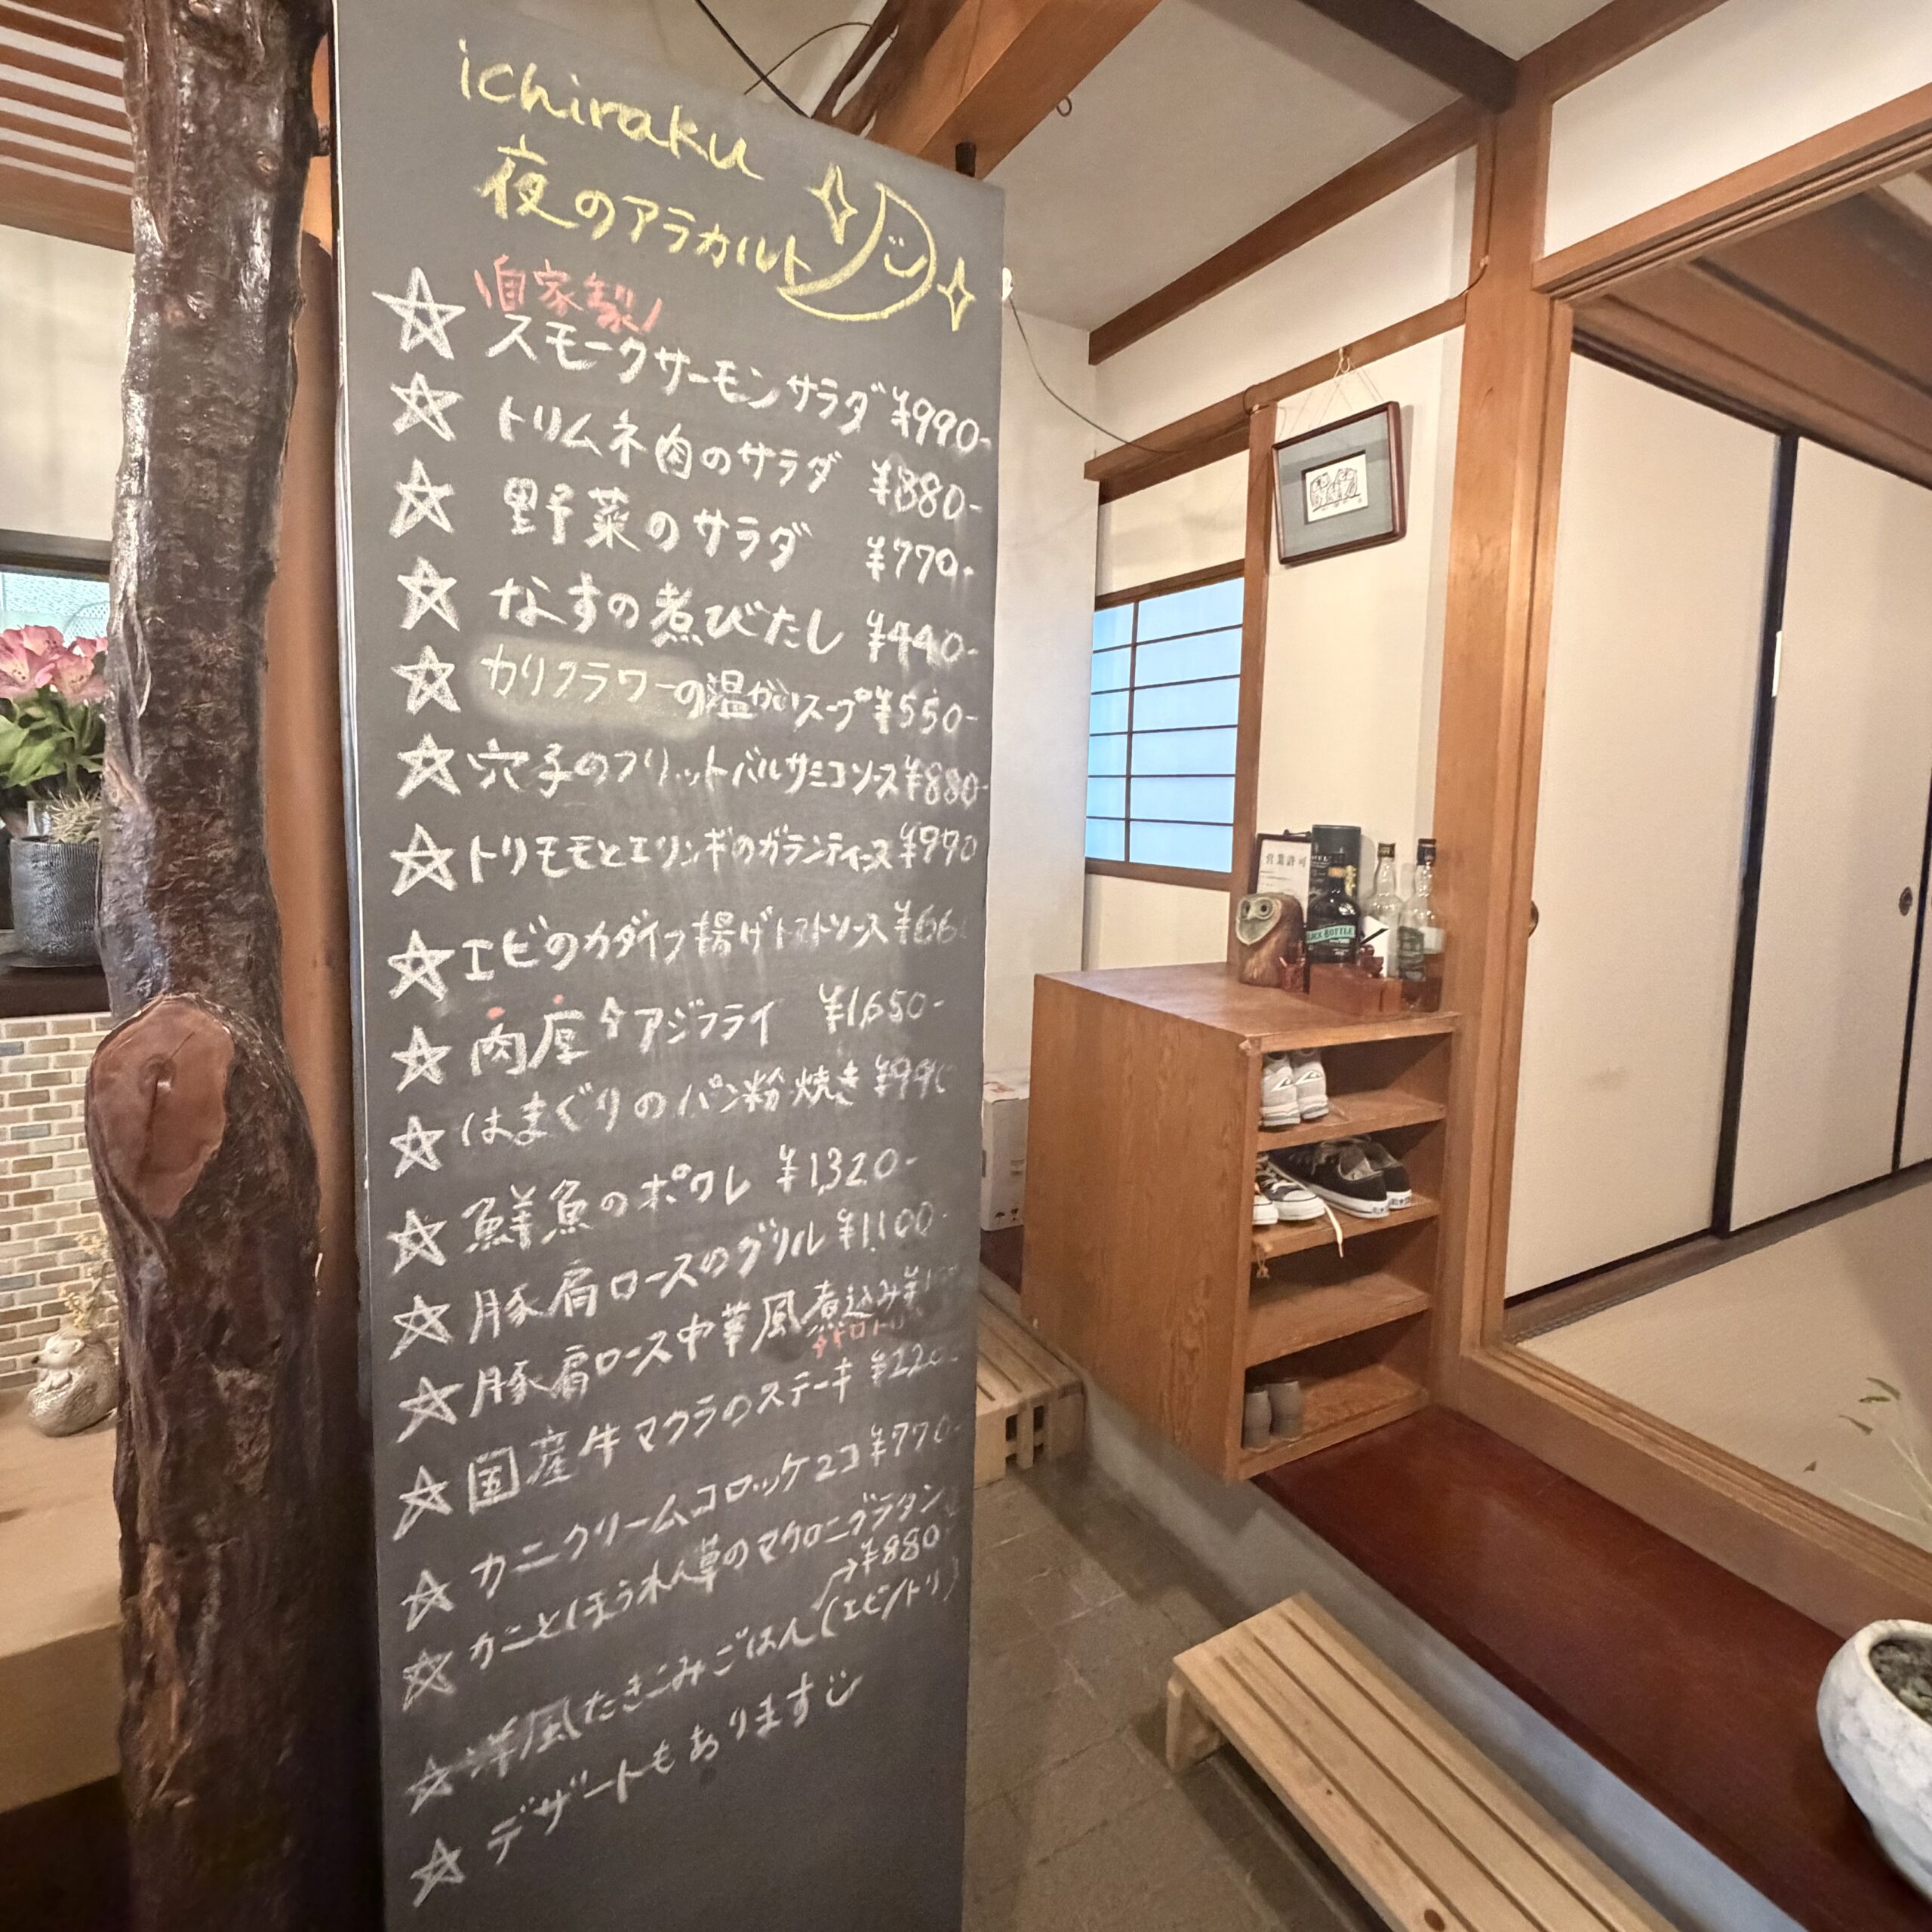 ichiraku
夜のアラカルト
自家製
☆スモークサーモンサラダ ¥990-
☆トリムネ肉のサラダ ¥880-
☆野菜のサラダ ¥770-
☆なすの煮びたし ¥440-
☆カリフラワーの温かいスープ ¥550-
☆穴子のフリットバルサミコソース ¥880-
☆トリモモとエリンギのガランティーヌ ¥990
☆エビのカダイフ揚げトマトソース ¥66
☆肉厚アジフライ ¥1,650-
☆はまぐりのパン粉焼き ¥990
☆鮮魚のポワレ ¥1,320-
☆豚肩ロースのグリル ¥1,100-
☆豚肩ロース中華風煮込み
☆国産牛マクラのステーキ ¥220
☆カニクリームコロッケ2コ ¥770-
☆カニとほうれん草のマカロニグラタン
→¥880
☆洋風たきこみごはん(エビ/トリ)
☆デザートもあります
営業許可
BLACK BOTTLE